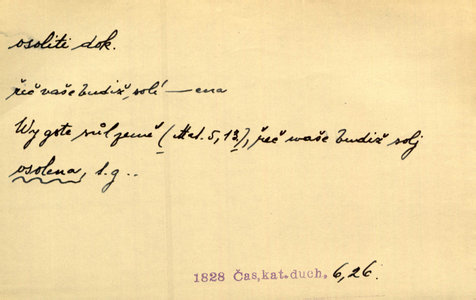 osoliti dok.
řeč vaše budiž solí — ena
Wy gste sůl země (Mat. 5, 13), řeč waše budiž solj
osolena, t. g..
1828 Čas.kat.duch. 6,26.